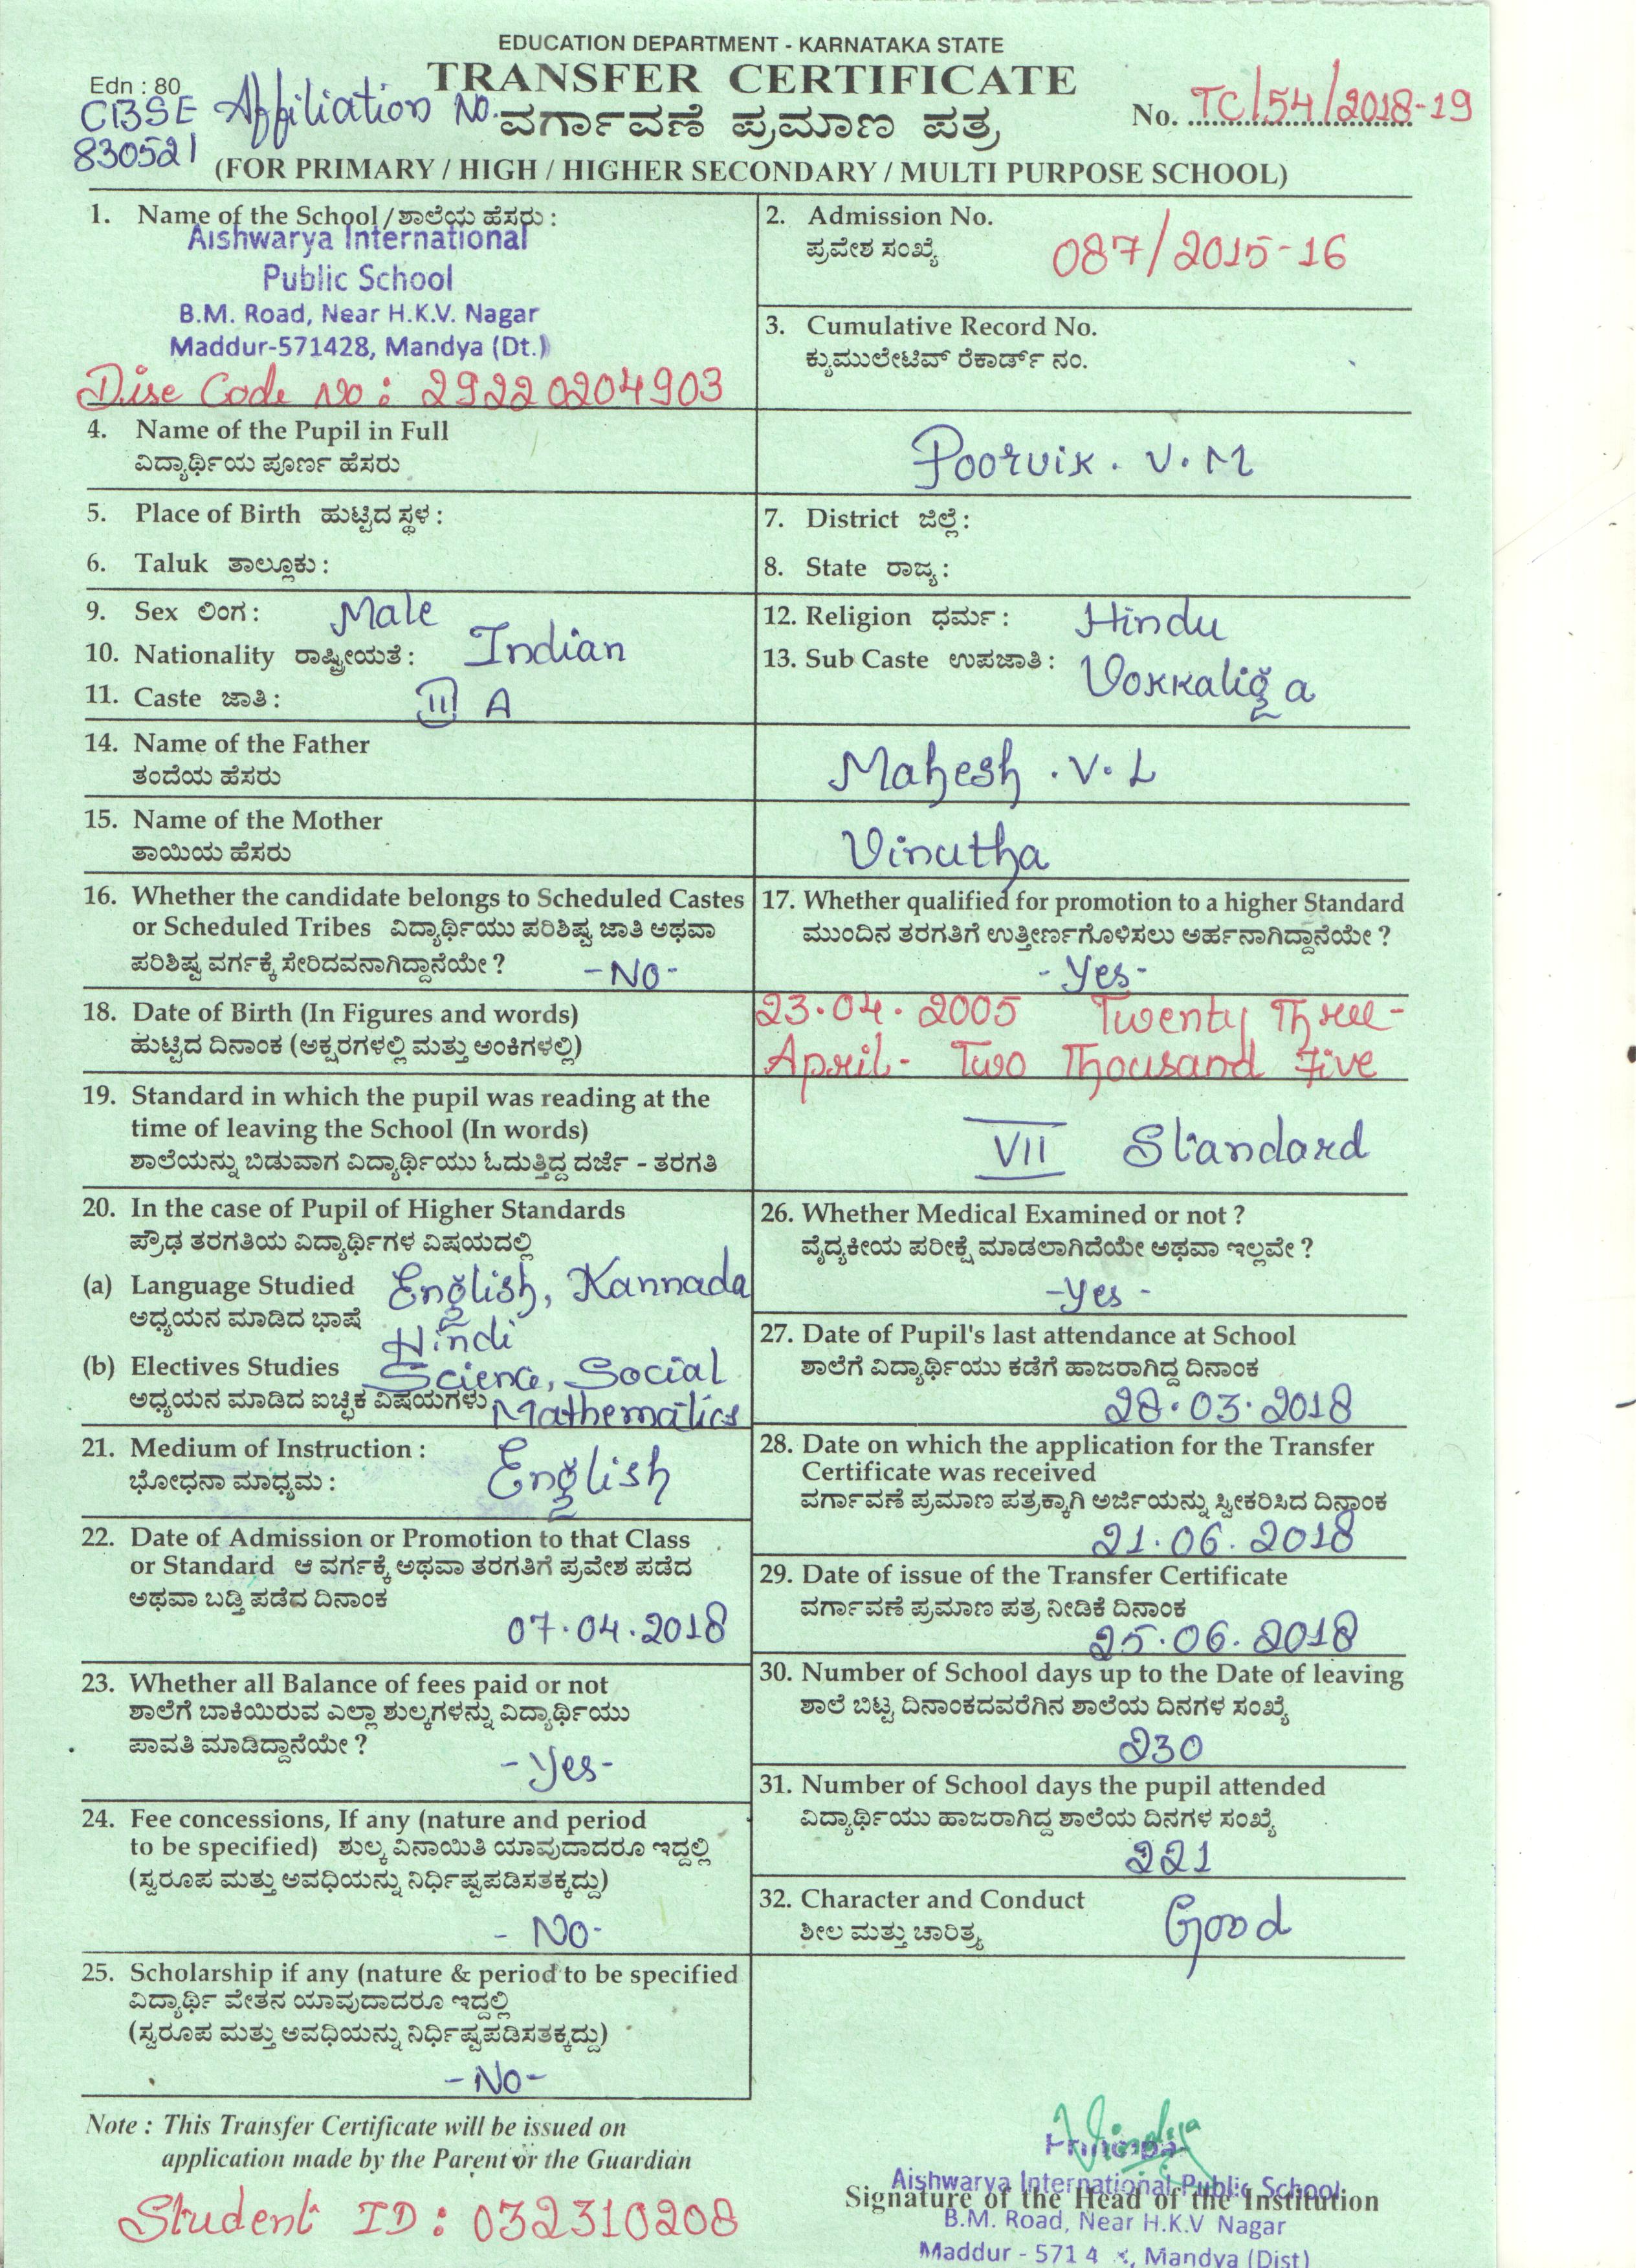 EDUCATION DEPARTMENT - KARNATAKA STATE
Edn : 80
TRANSFER CERTIFICATE
CBSE Affiliation No.
830521
ವರ್ಗಾವಣೆ ಪ್ರಮಾಣ ಪತ್ರ
No. TC/54/2018-19
(FOR PRIMARY / HIGH / HIGHER SECONDARY / MULTI PURPOSE SCHOOL)
1. Name of the School / ಶಾಲೆಯ ಹೆಸರು :
Aishwarya International
Public School
B.M. Road, Near H.K.V. Nagar
Maddur-571428, Mandya (Dt.)
Dise Code No : 29220204903
2. Admission No.
ಪ್ರವೇಶ ಸಂಖ್ಯೆ
087/2015-16
3. Cumulative Record No.
ಕ್ಯುಮುಲೇಟಿವ್ ರೆಕಾರ್ಡ್ ನಂ.
4. Name of the Pupil in Full
ವಿದ್ಯಾರ್ಥಿಯ ಪೂರ್ಣ ಹೆಸರು
Poorvik. V. M
5. Place of Birth ಹುಟ್ಟಿದ ಸ್ಥಳ :
6. Taluk ತಾಲ್ಲೂಕು :
7. District ಜಿಲ್ಲೆ :
8. State ರಾಜ್ಯ :
9. Sex ಲಿಂಗ : Male
10. Nationality ರಾಷ್ಟ್ರೀಯತೆ : Indian
11. Caste ಜಾತಿ : III A
12. Religion ಧರ್ಮ : Hindu
13. Sub Caste ಉಪಜಾತಿ : Vokkaliga
14. Name of the Father
ತಂದೆಯ ಹೆಸರು
Mahesh . V. L
15. Name of the Mother
ತಾಯಿಯ ಹೆಸರು
Vinutha
16. Whether the candidate belongs to Scheduled Castes
or Scheduled Tribes ವಿದ್ಯಾರ್ಥಿಯು ಪರಿಶಿಷ್ಟ ಜಾತಿ ಅಥವಾ
ಪರಿಶಿಷ್ಟ ವರ್ಗಕ್ಕೆ ಸೇರಿದವನಾಗಿದ್ದಾನೆಯೇ ? -No-
17. Whether qualified for promotion to a higher Standard
ಮುಂದಿನ ತರಗತಿಗೆ ಉತ್ತೀರ್ಣಗೊಳಿಸಲು ಅರ್ಹನಾಗಿದ್ದಾನೆಯೇ ?
- Yes -
18. Date of Birth (In Figures and words)
ಹುಟ್ಟಿದ ದಿನಾಂಕ (ಅಕ್ಷರಗಳಲ್ಲಿ ಮತ್ತು ಅಂಕಿಗಳಲ್ಲಿ)
23.04.2005 Twenty Three-
April- Two Thousand Five
19. Standard in which the pupil was reading at the
time of leaving the School (In words)
ಶಾಲೆಯನ್ನು ಬಿಡುವಾಗ ವಿದ್ಯಾರ್ಥಿಯು ಓದುತ್ತಿದ್ದ ದರ್ಜೆ - ತರಗತಿ
VII Standard
20. In the case of Pupil of Higher Standards
ಪ್ರೌಢ ತರಗತಿಯ ವಿದ್ಯಾರ್ಥಿಗಳ ವಿಷಯದಲ್ಲಿ
(a) Language Studied English, Kannada
ಅಧ್ಯಯನ ಮಾಡಿದ ಭಾಷೆ Hindi
(b) Electives Studies Science, Social
ಅಧ್ಯಯನ ಮಾಡಿದ ಐಚ್ಛಿಕ ವಿಷಯಗಳು Mathematics
21. Medium of Instruction :
ಭೋಧನಾ ಮಾಧ್ಯಮ : English
22. Date of Admission or Promotion to that Class
or Standard ಆ ವರ್ಗಕ್ಕೆ ಅಥವಾ ತರಗತಿಗೆ ಪ್ರವೇಶ ಪಡೆದ
ಅಥವಾ ಬಡ್ತಿ ಪಡೆದ ದಿನಾಂಕ
07.04.2018
23. Whether all Balance of fees paid or not
ಶಾಲೆಗೆ ಬಾಕಿಯಿರುವ ಎಲ್ಲಾ ಶುಲ್ಕಗಳನ್ನು ವಿದ್ಯಾರ್ಥಿಯು
ಪಾವತಿ ಮಾಡಿದ್ದಾನೆಯೇ ?
-Yes-
24. Fee concessions, If any (nature and period
to be specified) ಶುಲ್ಕ ವಿನಾಯಿತಿ ಯಾವುದಾದರೂ ಇದ್ದಲ್ಲಿ
(ಸ್ವರೂಪ ಮತ್ತು ಅವಧಿಯನ್ನು ನಿರ್ಧಿಷ್ಟಪಡಿಸತಕ್ಕದ್ದು)
- No-
25. Scholarship if any (nature & period to be specified
ವಿದ್ಯಾರ್ಥಿ ವೇತನ ಯಾವುದಾದರೂ ಇದ್ದಲ್ಲಿ
(ಸ್ವರೂಪ ಮತ್ತು ಅವಧಿಯನ್ನು ನಿರ್ಧಿಷ್ಟಪಡಿಸತಕ್ಕದ್ದು)
-No-
26. Whether Medical Examined or not ?
ವೈದ್ಯಕೀಯ ಪರೀಕ್ಷೆ ಮಾಡಲಾಗಿದೆಯೇ ಅಥವಾ ಇಲ್ಲವೇ ?
-Yes -
27. Date of Pupil's last attendance at School
ಶಾಲೆಗೆ ವಿದ್ಯಾರ್ಥಿಯು ಕಡೆಗೆ ಹಾಜರಾಗಿದ್ದ ದಿನಾಂಕ
28.03.2018
28. Date on which the application for the Transfer
Certificate was received
ವರ್ಗಾವಣೆ ಪ್ರಮಾಣ ಪತ್ರಕ್ಕಾಗಿ ಅರ್ಜಿಯನ್ನು ಸ್ವೀಕರಿಸಿದ ದಿನಾಂಕ
21.06.2018
29. Date of issue of the Transfer Certificate
ವರ್ಗಾವಣೆ ಪ್ರಮಾಣ ಪತ್ರ ನೀಡಿಕೆ ದಿನಾಂಕ
25.06.2018
30. Number of School days up to the Date of leaving
ಶಾಲೆ ಬಿಟ್ಟ ದಿನಾಂಕದವರೆಗಿನ ಶಾಲೆಯ ದಿನಗಳ ಸಂಖ್ಯೆ
230
31. Number of School days the pupil attended
ವಿದ್ಯಾರ್ಥಿಯು ಹಾಜರಾಗಿದ್ದ ಶಾಲೆಯ ದಿನಗಳ ಸಂಖ್ಯೆ
221
32. Character and Conduct
ಶೀಲ ಮತ್ತು ಚಾರಿತ್ರ್ಯ
Good
Note : This Transfer Certificate will be issued on
application made by the Parent or the Guardian
Student ID : 032310208
Principal
Aishwarya International Public School
Signature of the Head of the Institution
B.M. Road, Near H.K.V Nagar
Maddur - 571 4 , Mandya (Dist)